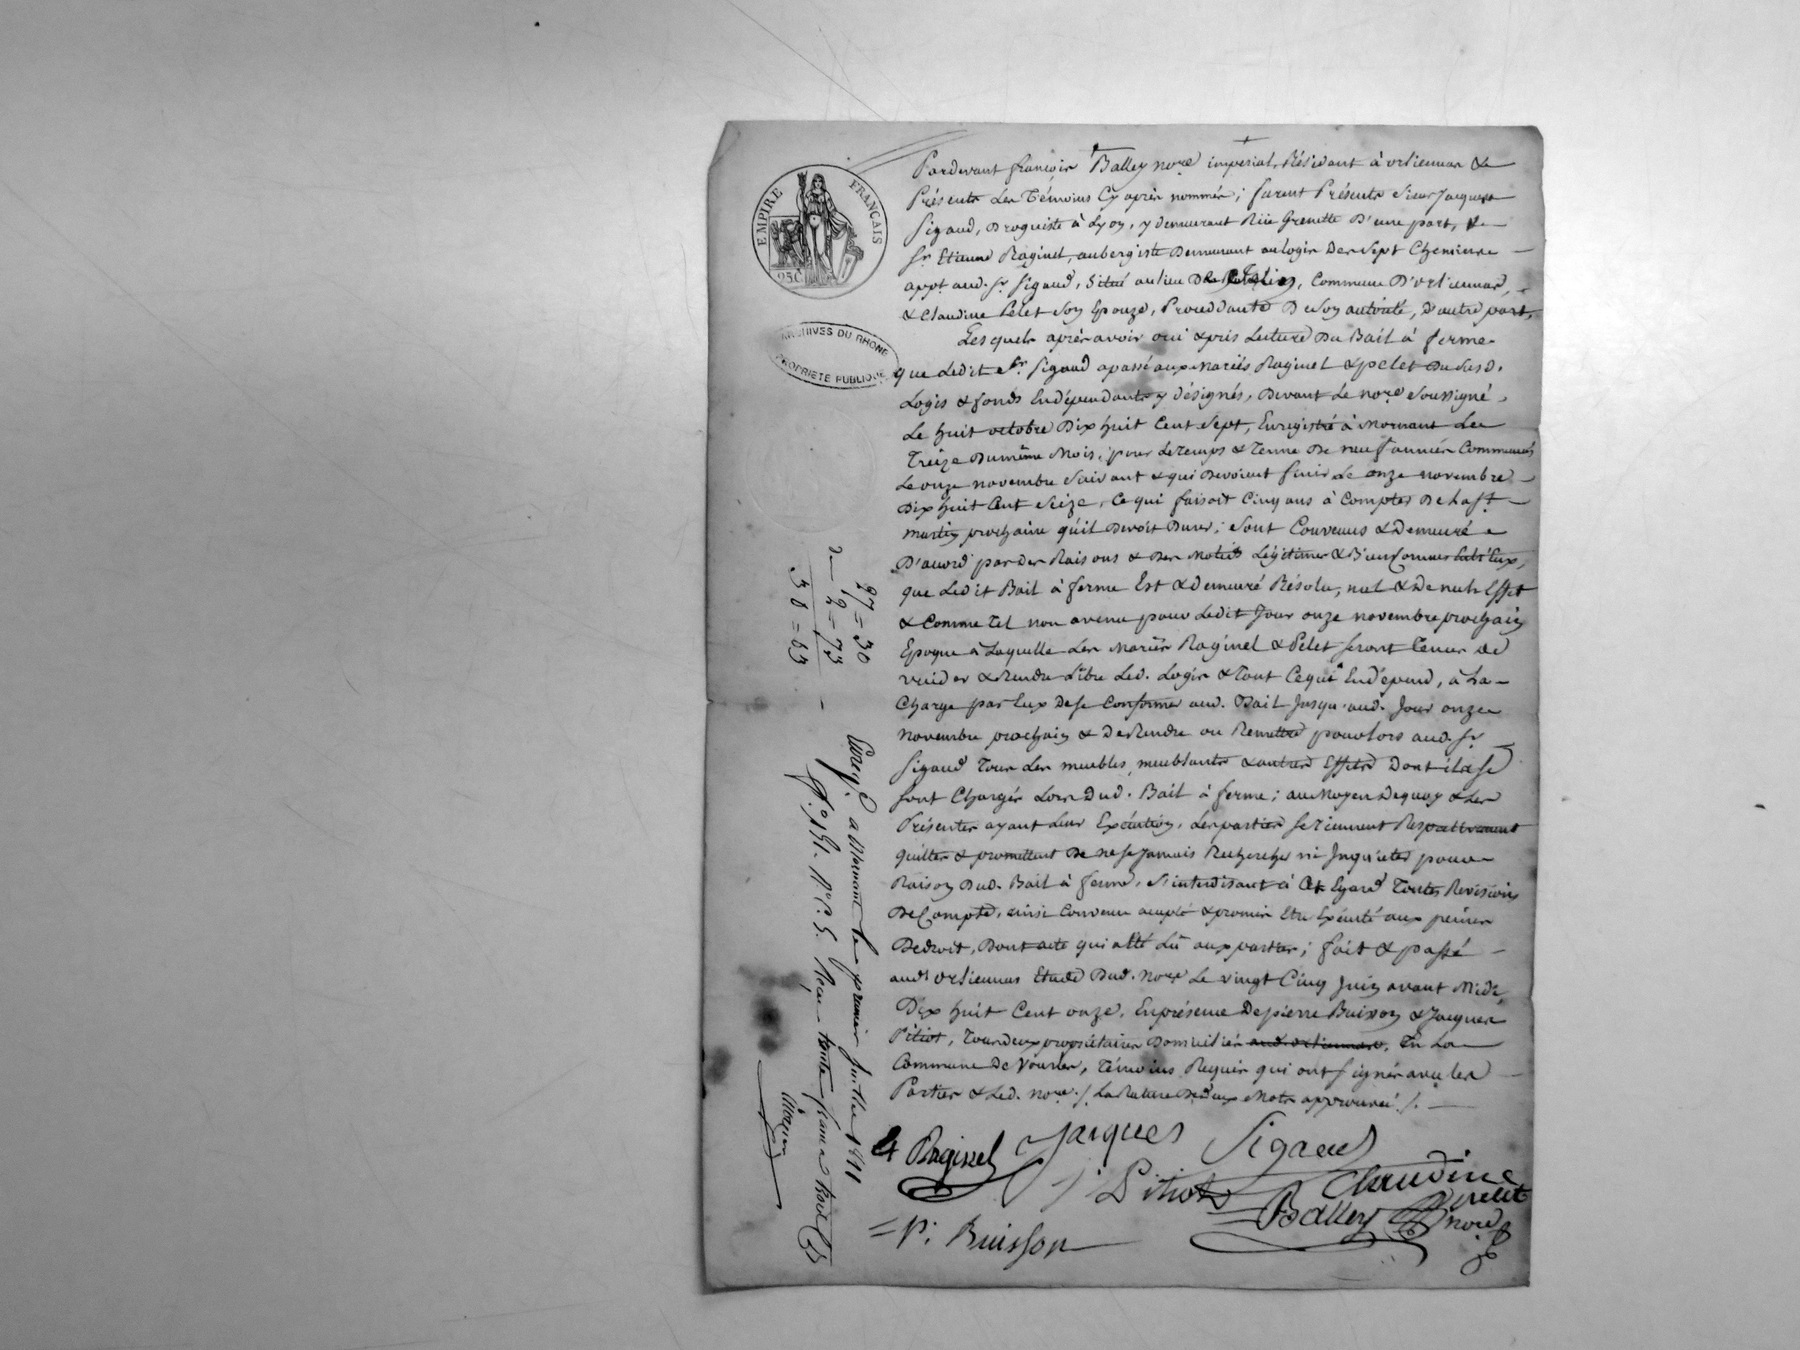 EMPIRE FRANÇAIS
25C
ARCHIVES DU RHONE
PROPRIETE PUBLIQUE
Pardevant françois Balley nore imperial, Résidant à orliennas &
Présents les Témoins Cy après nommés; furent Présents Sieur Jacques
Sigaud, Droguiste à Lyon, y demeurant Rüe Grenette D'une part, &
Sr. Etienne Raginel, aubergiste Demeurant au logis Des Sept Chemins
appt. aud. Sr. Sigaud, Situé au lieu De, Commune D'orliennas,
& Claudine Pelet Son Epouze, Procédante De Son autorité, D'autre part,
Lesquels après avoir oui & pris Lecture Du Bail à ferme
que Ledit Sr. Sigaud a passé aux mariés Raginel & pelet Du Susd.
Logis & fonds En dépendants y désignés, Devant Le nore Soussigné,
Le huit octobre Dix huit Cent Sept, Enregistré à Mornant Le
Treize Du même Mois, pour Le Temps & Terme De neuf années Commencés
Le onze novembre Suivant & qui Devoient finir Le onze novembre
Dix huit Cent Seize, Ce qui faisoit Cinq ans à Compter De la St.
martin prochaine qu'il Devoit Durer; Sont Convenus & Demeuré
D'accord par des Raisons & Des Motifs Légitimes & D'eux Connus
que Ledit Bail à ferme Est & demeuré Résolu, nul & De nul Effet
& Comme Tel non avenu pour Ledit Jour onze novembre prochain
Epoque à Laquelle Les Mariés Raginel & Pelet Seront Tenus de
vuider & Rendre Libre Led. Logis & Tout Ce qui En dépend, à La
Charge par Eux De Se Conformer aud. Bail Jusqu'aud. Jour onze
Novembre prochain & De Rendre ou Remettre pour lors aud. Sr.
Sigaud Tous Les meubles, meublants & autres Effets Dont ils Se
Sont Chargés Lors Dud. Bail à ferme; au Moyen De quoy & Les
Présentes ayant Leur Exécution, Les parties Se Tiennent Respectivement
quittes & promettent De ne Se Jamais Rechercher ni Inquieter pour
Raison Dud. Bail à ferme, S'interdisant à Cet Egard Toutes Revisions
De Compte, ainsi Convenu accepté & promis Etre Exécuté aux peines
De droit, Dont acte qui a Eté Lû aux parties; fait & passé
aud. orliennas Etude Dud. Nore Le vingt Cinq Juin avant Midi,
Dix huit Cent onze, En présence De pierre Buisson & Jacques
Pitiot, Tous deux propriétaires Domiciliés aud. orliennas, En La
Commune De Vourles, Témoins Requis qui ont Signés avec les
Parties & Led. nore. /. La Rature De deux Mots approuvée /.
Et Raginel Jacques Sigaud
J Pitiot Claudine pelet
Balley nore
= P: Buisson
27 = 30
2 = 73
30 = 03
Enregé. a Mornant le premier Juillet 1811
fo. 151. Ro. C. 5. Reçu trente francs trois C